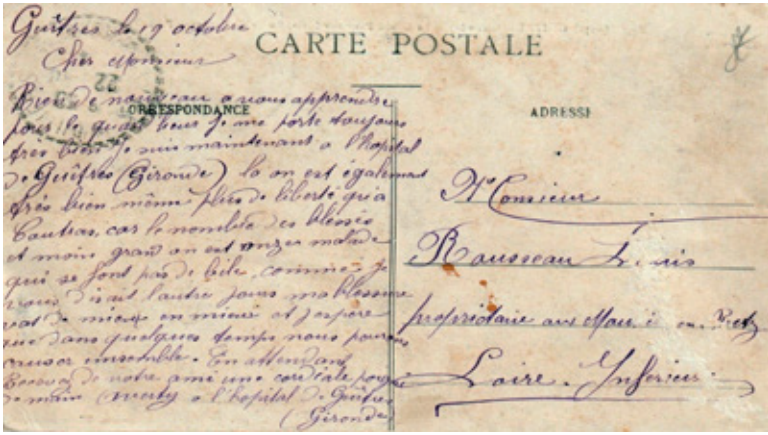 Guîtres le 19 octobre
Cher Monsieur
CARTE POSTALE
22
CORRESPONDANCE
Rien de nouveau a vous apprendre
pour le quart heur je me porte toujours
très bien je suis maintenant a l'hopital
de Guîtres (Gironde) la on est également
très bien même plus de liberté qu'a
Coutras, car le nombre des blessés
et moins grand on est onze malade
qui se font pas de bile, comme je
vous disait l'autre jours ma blessure
vat de mieux en mieux et j'espère
que dans quelques temps nous pourons
causer ensemble. En attendant
Recevez de votre ami une cordiale poignée
de main a l'hopital de Guîtres
(Gironde)
ADRESSE
Monsieur
Rousseau Louis
propriétaire aux en Retz
Loire. Inférieure